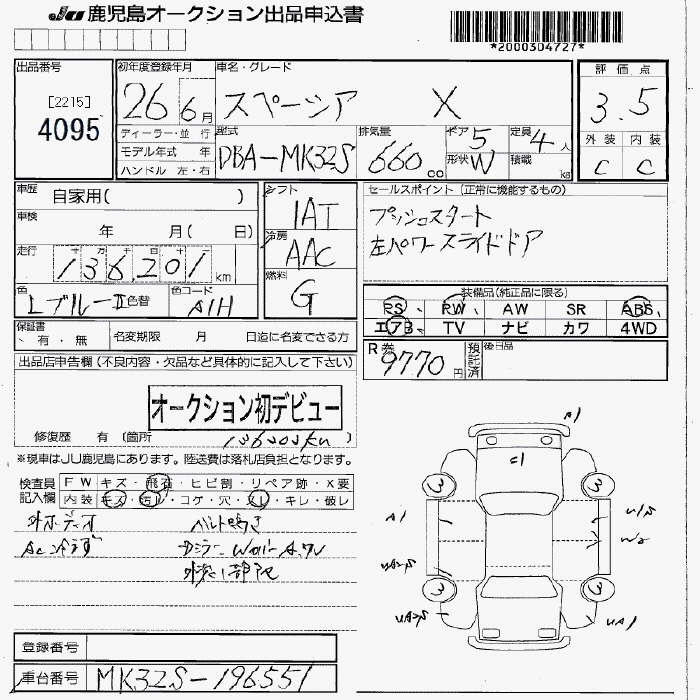 JU 鹿児島オークション出品申込書
*2000304727*
出品番号
[2215]
4095
初年度登録年月
26 6月
ディーラー・並 行
モデル年式 年
ハンドル 左・右
車名・グレード
スペーシア X
型式
DBA-MK32S
排気量
660cc
ドア 5
形状 W
定員 4人
積載 kg
評 価 点
3.5
外 装 内 装
C C
車歴 自家用( )
車検 年 月( 日)
走行 十 万 千 百 十 一
136,201 km
色 Lブルー II 色替
色コード A1H
シフト
IAT
冷房
AAC
燃料
G
セールスポイント (正常に機能するもの)
プッシュスタート
左パワースライドドア
装備品(純正品に限る)
PS、 PW、 AW SR ABS、
エアB、 TV ナビ カワ 4WD
保証書
、有・無
名変期限 月 日迄に名変できる方
R券 9770円
預託済
後日品
出品店申告欄(不良内容・欠品など具体的に記入して下さい)
オークション初デビュー
修復歴 有 (箇所 )
136200km
※現車はJU鹿児島にあります。陸送費は落札店負担となります。
検査員記入欄
FW キズ・飛石・ヒビ割・リペア跡・X要
内装 キズ・汚レ・コゲ・穴・スレ・キレ・破レ
ベルト鳴き
A1
C1
3 3
A1
W2
3 3
UA1
登録番号
車台番号 MK32S-196551